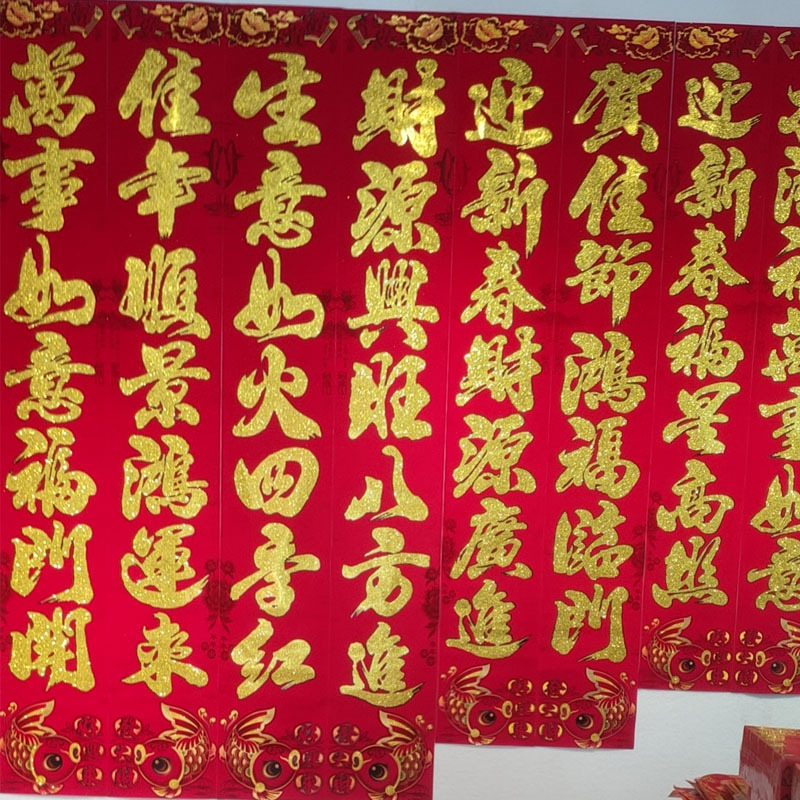 萬事如意福門開
佳年順景鴻運來
生意如火四季紅
財源興旺八方進
迎新春財源廣進
賀佳節鴻福臨門
迎新春福星高照
福萬事如意